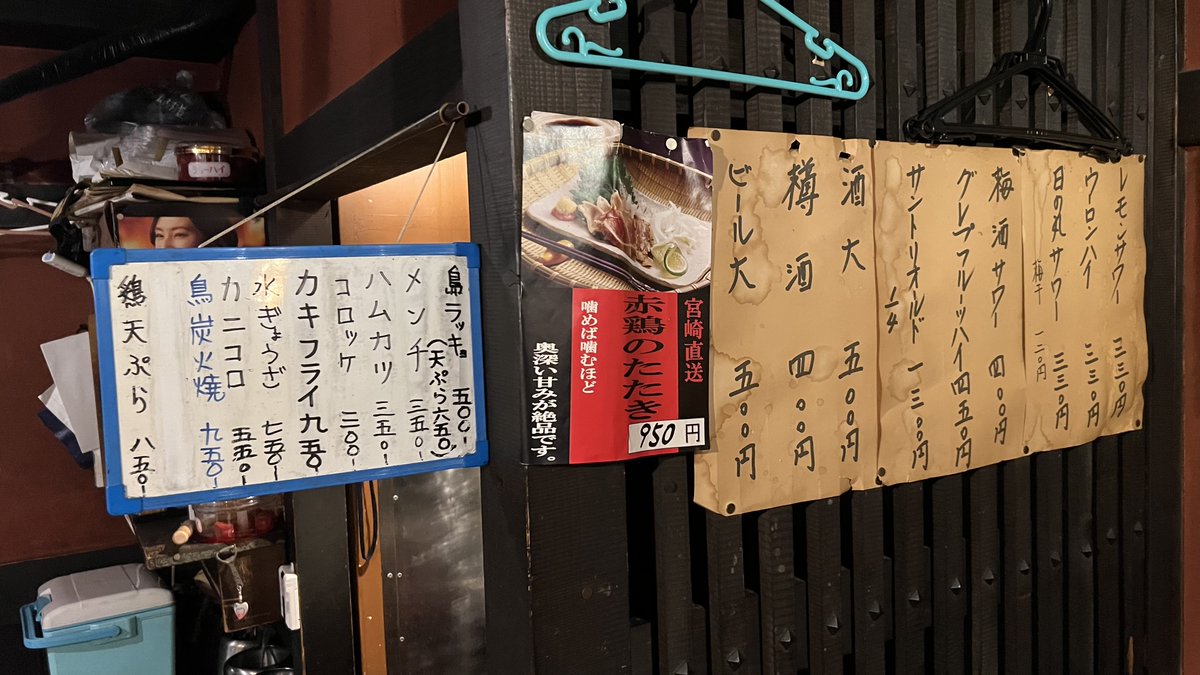 島ラッキョ 五〇〇-
(天ぷら六五〇-)
メンチ 三五〇-
ハムカツ 三五〇-
コロッケ 三〇〇-
カキフライ 九五〇-
水ぎょうざ 七五〇-
カニコロ 五五〇-
鳥炭火焼 九五〇-
鶏天ぷら 八五〇-
宮崎直送
赤鶏のたたき
噛めば噛むほど
奥深い甘みが絶品です。
950円
レモンサワー 三三〇円
ウーロンハイ 三三〇円
日の丸サワー 三三〇円
梅干 一二〇円
梅酒サワー 四〇〇円
グレープフルーツハイ 四五〇円
サントリオールド 1/4 一三〇〇円
酒大 五〇〇円
樽酒 四〇〇円
ビール大 五〇〇円